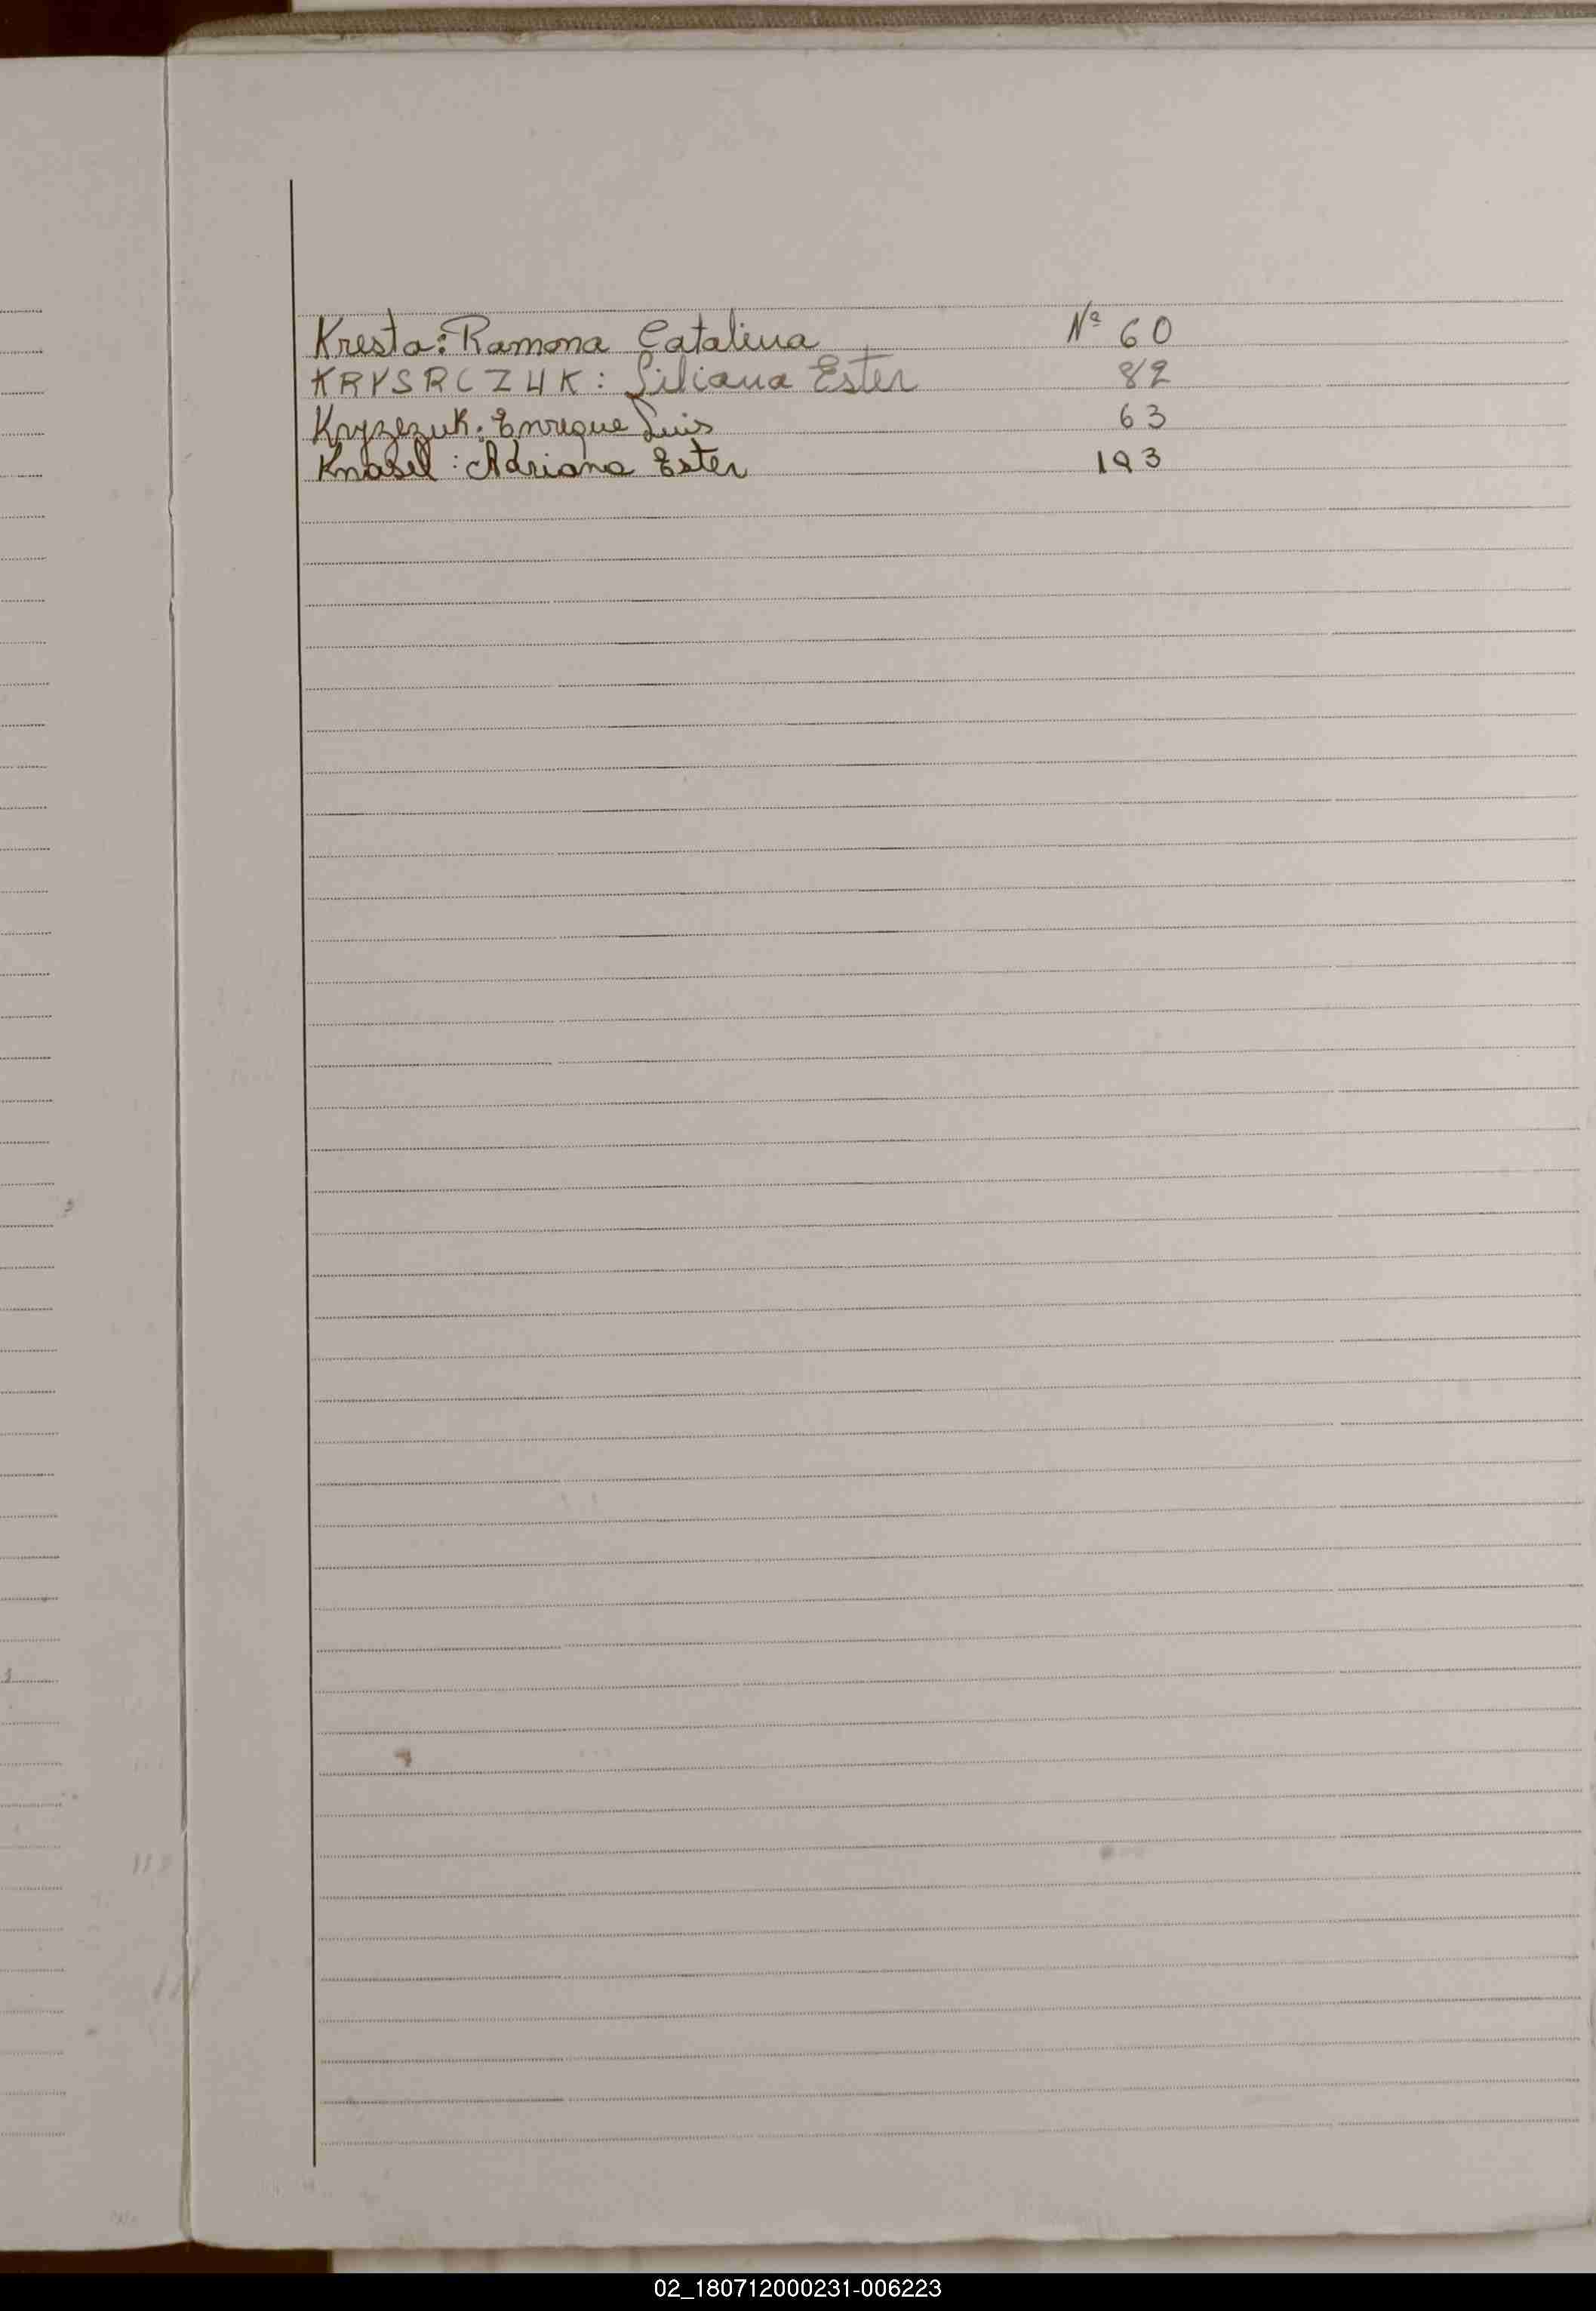 Kresta: Ramona Catalina Nº 60
KRYSRCZUK: Liliana Ester 82
Kryzezuk: Enrique Luis 63
Knasel: Adriana Ester 193
02_180712000231-006223